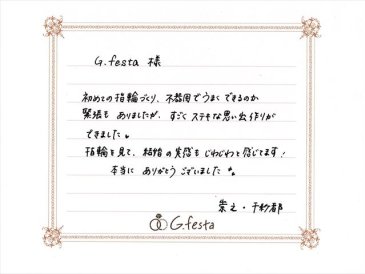 G.festa 様
初めての指輪づくり、不器用でうまくできるのか
緊張もありましたが、すごくステキな思い出作りが
できました。
指輪を見て、結婚の実感もじわじわと感じてます!
本当に ありがとうございました
崇之・千紗都
G.festa